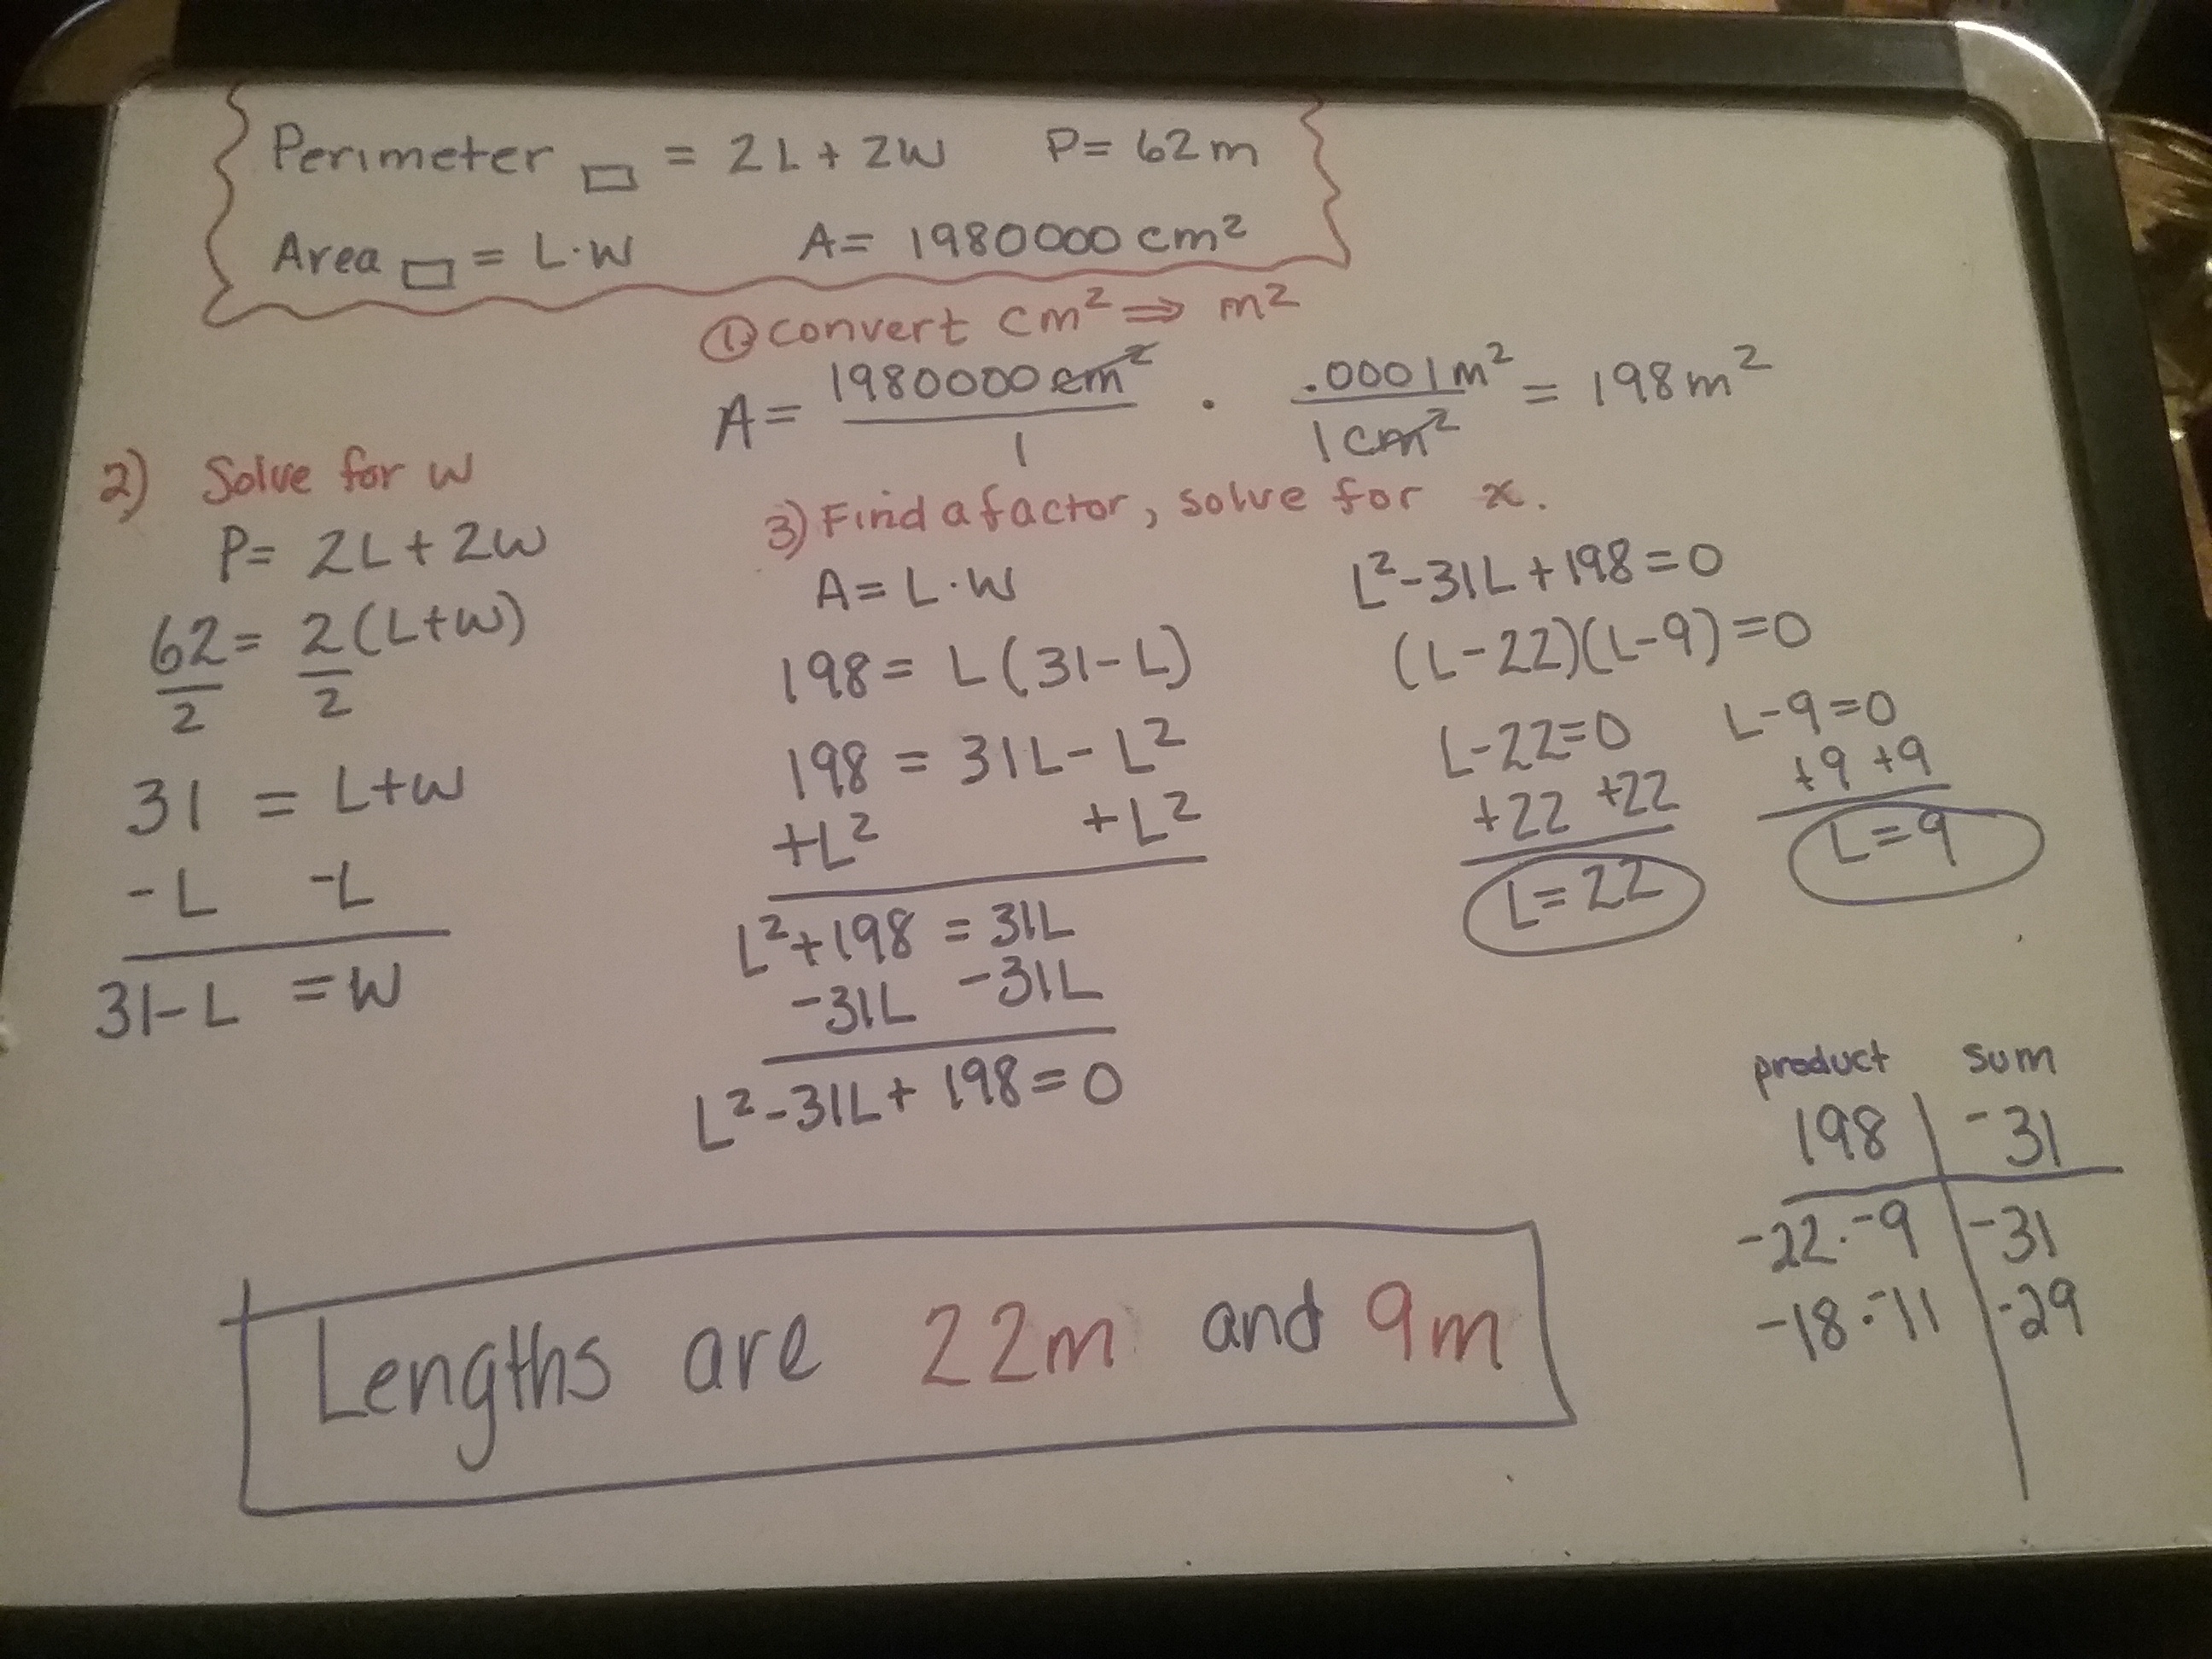 Perimeter ▭ = 2L + 2W P= 62m
Area ▭ = L·W A= 1980000 cm²
① convert cm² ⇒ m²
A= 1980000 cm²/1 · .0001m²/1cm² = 198m²
2) Solve for W
P= 2L+2W
62/2 = 2/2 (L+W)
31 = L+W
-L -L
31-L = W
3) Find a factor, solve for x.
A= L·W
198= L(31-L)
198 = 31L-L²
+L² +L²
L²+198 = 31L
-31L -31L
L²-31L+198=0
L²-31L+198=0
(L-22)(L-9)=0
L-22=0
+22 +22
L=22
L-9=0
+9 +9
L=9
product sum
198 -31
-22·-9 -31
-18·-11 -29
Lengths are 22m and 9m